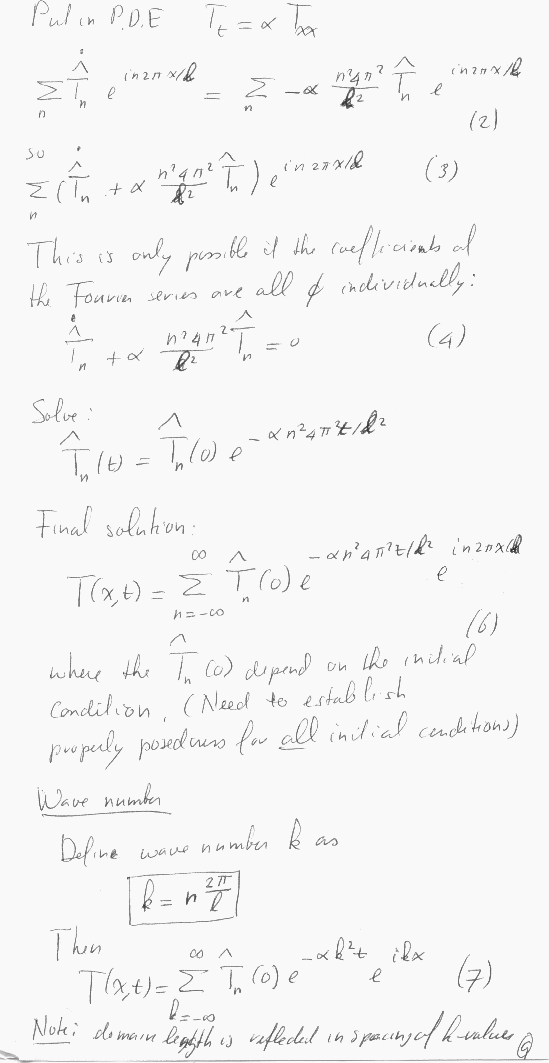 Put in P.D.E T_t = α T_xx
∑_n \dot{\hat{T}}_n e^{in2πx/ℓ} = ∑_n -α \frac{n²4π²}{ℓ²} \hat{T}_n e^{in2πx/ℓ}
(2)
so
∑_n (\dot{\hat{T}}_n + α \frac{n²4π²}{ℓ²} \hat{T}_n) e^{in2πx/ℓ} (3)
This is only possible if the coefficients of
the Fourier series are all 0 individually:
\dot{\hat{T}}_n + α \frac{n²4π²}{ℓ²} \hat{T}_n = 0 (4)
Solve:
\hat{T}_n(t) = \hat{T}_n(0) e^{-αn²4π²t/ℓ²}
Final solution:
T(x,t) = ∑_{n=-∞}^{∞} \hat{T}_n(0) e^{-αn²4π²t/ℓ²} e^{in2πx/ℓ}
(6)
where the \hat{T}_n(0) depend on the initial
condition. (Need to establish
properly posedness for all initial conditions)
Wave number
Define wave number k as
k = n \frac{2π}{ℓ}
Then
T(x,t) = ∑_{k=-∞}^{∞} \hat{T}_n(0) e^{-αk²t} e^{ikx} (7)
Note: domain length is reflected in spacing of k-values